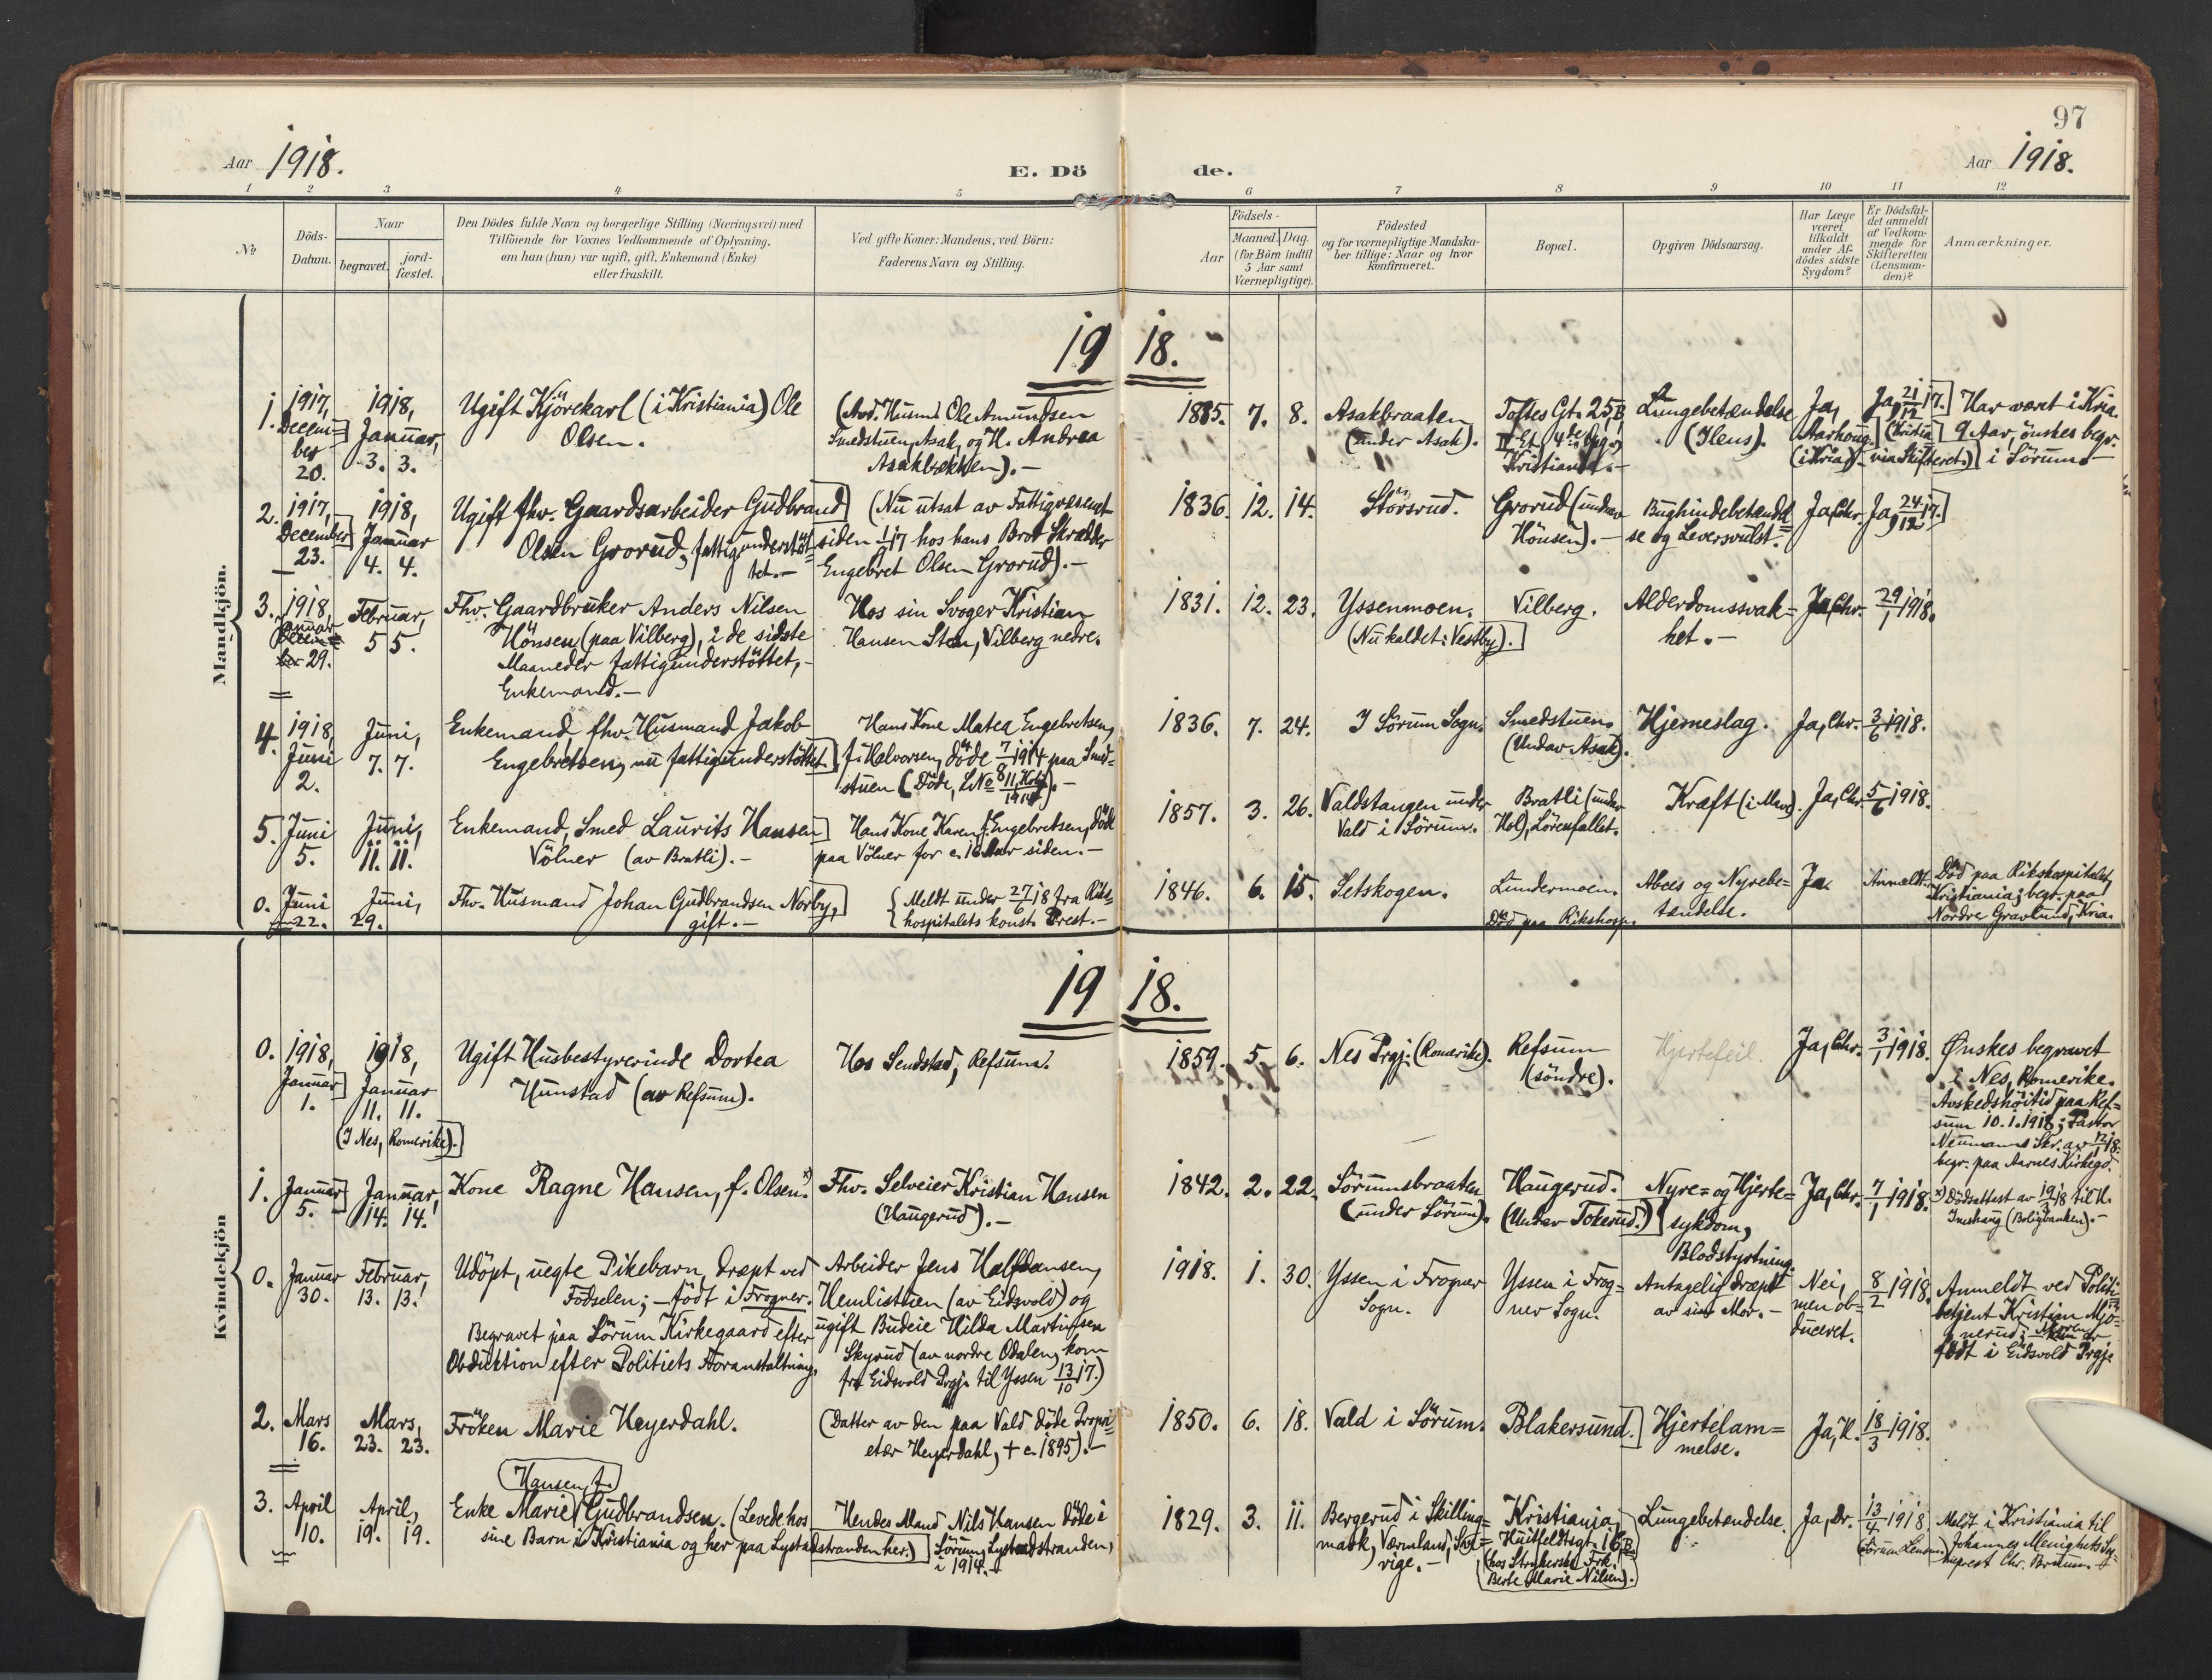 97
Aar 1918.
E. Dö de.
Aar 1918.
1 2 3 4 5 6 7 8 9 10 11 12
No
Döds-
Datum.
Naar
begravet.
jord-
fæstet.
Den Dödes fulde Navn og borgerlige Stilling (Næringsvei) med
Tilföiende for Voxnes Vedkommende af Oplysning,
om han (hun) var ugift, gift, Enkemand (Enke)
eller fraskilt.
Ved gifte Koner: Mandens, ved Börn:
Faderens Navn og Stilling.
Födsels-
Aar
Maaned. Dag.
(for Börn indtil
5 Aar samt
Værnepligtige).
Födested
og for værnepligtige Mandska-
ber tillige: Naar og hvor
Konfirmeret.
Bopæl.
Opgiven Dödsaarsag.
Har Læge
været
tilkaldt
under Af-
dödes sidste
Sygdom?
Er Dödsfal-
det anmeldt
af Vedkom-
mende for
Skifteretten
(Lensman-
den)?
Anmærkninger.
Mandkjön.
1918.
1.
1917,
Decem-
ber
20.
1918,
Januar,
3. 3.
Ugift Kjörekarl (i Kristiania) Ole
Olsen.
(Avd. Husmd. Ole Amundsen
Smedstuen, Asak, og H. Andrea
Asakbækken).-
1885. 7. 8.
Asakbraaten
(under Asak).
Toftes Gt. 25B,
IV Et. 4de Opg.,
Kristiania.-
Lungebetændelse
(Ileus).
Ja,
Aarhoug.
(i Kria)
Ja, 21/12 17.
(Kristia
via Skifteret.)
Har været i Kria.
9 Aar, önskes begr.
i Sörum.
2.
1917,
December
23.
1918,
Januar
4. 4.
Ugift fhv. Gaardsarbeider Gudbrand
Olsen Grorud, fattigunderstöt-
tet.-
(Nu utsat av Fattigvæsenet
siden 1/1 17 hos hans Bror Skrædder
Engebret Olsen Grorud).-
1836. 12. 14.
Störsrud.
Grorud (undav
Hönsen).-
Bughindebetændel
se og Leversvulst.
Ja, Chr.
Ja, 24/12 17.
3.
1918,
Januar
Decem-
ber 29.
Februar,
5 5.
Fhv. Gaardbruker Anders Nilsen
Hönsen (paa Vilberg), i de sidste
Maaneder fattigunderstöttet,-
Enkemand.-
Hos sin Svoger Kristian
Hansen Sten, Vilberg nedre.
1831. 12. 23.
Yssenmoen.
(Nu kaldet: Vestby).
Vilberg.
Alderdomssvak=
het.-
Ja, Chr.
29/1 1918.
4.
1918,
Juni
2.
Juni,
7. 7.
Enkemand, fhv. Husmand Jakob
Engebretsen, nu fattigunderstöttet.
Hans Kone Matea Engebretsen,
f. Halvorsen, döde 7/8 1914 paa Smed-
stuen (Döde, L.No 11, Kvkj. 1914).-
1836. 7. 24.
I Sörum Sogn.
Smedstuen.
(Undav Asak).
Hjerneslag.
Ja, Chr.
3/6 1918.
5.
Juni
5.
Juni,
11. 11.
Enkemand, Smed Laurits Hansen
Völner (av Bratli).-
Hans Kone Karen f. Engebretsen, döde
paa Völner for c. 16 Aar siden.-
1857. 3. 26.
Valdstangen under
Vald i Sörum.
Bratli (under
Hol), Lörenfallet.
Kræft (i Mave).
Ja, Chr.
5/6 1918.
0.
Juni
22.
Juni,
29.
Fhv. Husmand Johan Gudbrandsen Norby,
gift.-
Meldt under 27/6 18 fra Riks-
hospitalets konst. Prest.-
1846. 6. 15.
Setskogen.
Lundermoen.
Död paa Rikshosp.
Absces og Nyrebe=
tændelse.
Ja.
Anmeldt.
Död paa Rikshospitalet,
Kristiania; begr. paa
Nordre Gravlund, Kria.
Kvindekjön
1918.
0.
1918,
Januar
1.
1918,
Januar
11. 11.
(I Nes, Romerike).
Ugift Husbestyrerinde Dortea
Hunstad (av Refsum).
Hos Sendstad, Refsum.
1859. 5. 6.
Nes Prgj. (Romerike).
Refsum
(söndre).
Hjertefeil.
Ja, Chr.
3/1 1918.
Ønskes begravet
i Nes, Romerike.
Avskedshöitid paa Ref=
sum 10.1.1918; Pastor
Neumanns Skr. av 12/1 18.
begr. paa Aarnes Kirkegd.
1.
Januar
5.
Januar,
14. 14.
Kone Ragne Hansen, f. Olsen.x)
Fhv. Selveier Kristian Hansen
(Haugerud).-
1842. 2. 22.
Sörumsbraaten
(under Sörum).
Haugerud.
(Undav Tokerud.)
Nyre= og Hjerte=
sykdom,
Blodstyrtning.
Ja, Chr.
7/1 1918.
x) Dödsattest av 19/3 18 til H.
Ineshaug (Boligbanken).-
0.
Januar
30.
Februar,
13. 13.
Udöpt, uegte Pikebarn, dræpt ved
Födselen; - födt i Frogner.
Begravet paa Sörum Kirkegaard efter
Obduktion efter Politiets Foranstaltning.
Arbeider Jens Halfdansen,
Hemlistuen (av Eidsvold) og
ugift Budeie Hilda Martinsen
Skyrud (av nordre Odalen, kom
fra Eidsvold Prgj. til Yssen 13/10 17.)
1918. 1. 30.
Yssen i Frogner
Sogn.
Yssen i Frog=
ner Sogn.
Antagelig dræpt
av sin Mor.-
Nei,
men ob=
duceret.
8/2 1918.
Anmeldt ved Politi=
betjent Kristian Mjö=
nerud; Moren er
födt i Eidsvold Prgj.
2.
Mars
16.
Mars,
23. 23.
Fröken Marie Heyerdahl.
(Datter av den paa Vald döde Propri=
etær Heyerdahl, † c. 1895).-
1850. 6. 18.
Vald i Sörum.
Blakersund.
Hjertelam=
melse.
Ja, K.
18/3 1918.
3.
April
10.
April,
19. 19.
Hansen, f.
Enke Marie Gudbrandsen. (Levede hos
sine Barn i Kristiania og her paa Lystadstranden her.)
Hendes Mand Nils Hansen döde i
Sörum, Lystadstranden,
i 1914.-
1829. 3. 11.
Bergerud i Skilling=
mark, Værmland, Sve=
rige.-
Kristiania,
Huitfeldtsgt. 16B
(hos Strykerske Frk.
Berte Marie Nilsen).
Lungebetændelse.
Ja, Dr.
13/4 1918.
(Sörum Lensm.)
Meldt i Kristiania til
Johannes Menighets Sog-
neprest Chr. Bruun.